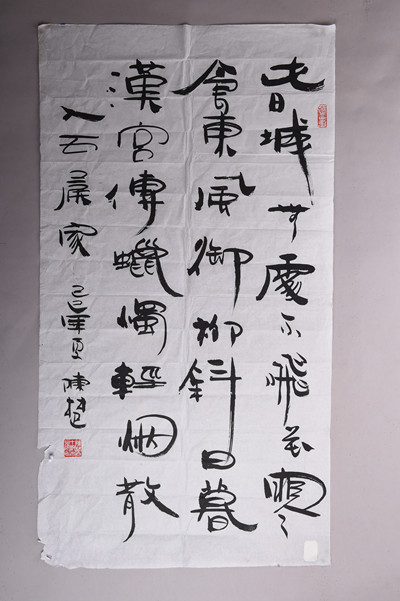 春城無處不飛花寒
食東風御柳斜日暮
漢宮傳蠟燭輕烟散
入五侯家 己巳年夏 陳